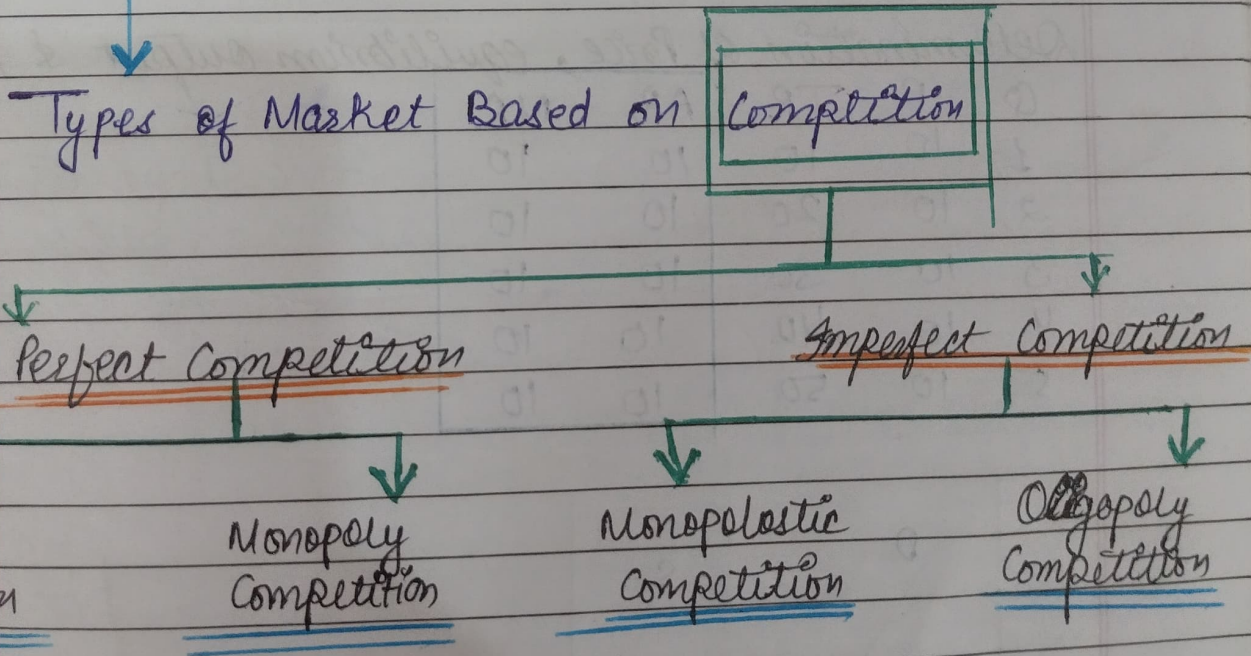 Types of Market Based on Competition
Perfect Competition
Imperfect Competition
Monopoly
Competition
Monopolostic
Competition
Oligopoly
Competition